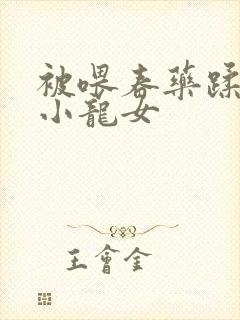 被喂春藥蹂
小龍女
王會金